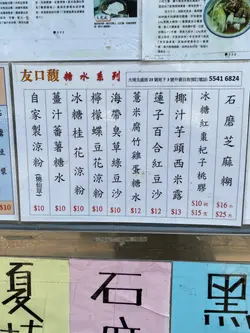 友口馥 糖水系列
5541 6824
石磨芝麻糊
$16
$25
冰糖紅棗杞子桃膠
$10
$15
椰汁芋頭西米露
$13
蓮子百合紅豆沙
$12
薏米腐竹雞蛋糖水
$12
海帶臭草綠豆沙
$10
檸檬蝶豆花涼粉
$10
冰糖桂花涼粉
$10
薑汁蕃薯糖水
$10
自家製涼粉(仙草)
$10
$10
黑
石
夏